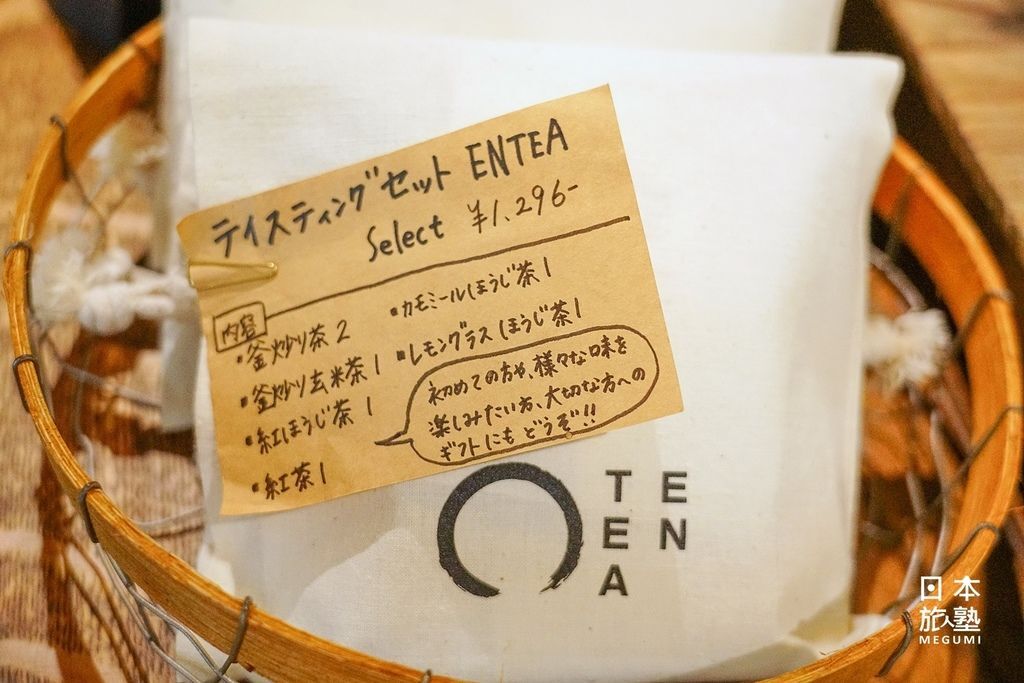 テイスティングセット ENTEA
Select ¥1,296-
内容
・釜炒り茶 2
・釜炒り玄米茶 1
・紅ほうじ茶 1
・紅茶 1
・カモミールほうじ茶 1
・レモングラスほうじ茶 1
初めての方や、様々な味を
楽しみたい方、大切な方への
ギフトにもどうぞ!!
TEA
EN
日本
旅人塾
MEGUMI